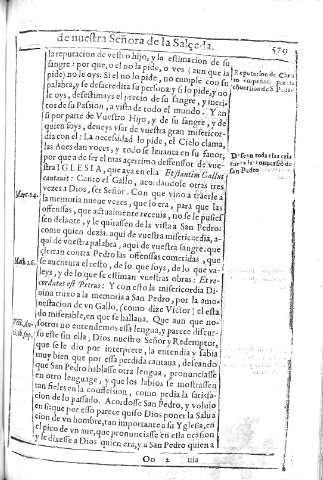 de nuestra Señora de la Salceda. 579
la reputacion de vestro hijo, y la estimacion de su
sangre: por que, o el no la pide, o ves (aun que la
pide) no le oys: Si el no lo pide, no cumple con su
palabra, y se desacredita su persona: y si lo pide, y no
le oys, desestimays el precio de su sangre, y meri-
tos de su Passion, a vista de todo el mundo. Y an
si por parte de Vuestro Hijo, y de su sangre, y de
quien soys, deueys vsar de vuestra gran misericor-
dia con el: La necessidad lo pide, el Cielo clama,
las Aues dan voces, y todo se leuanta en su fauor,
por que a de ser el mas acerrimo defensor de vues-
tra IGLESIA, que aya en ella Et statim Gallus
cantauit: Canto el Gallo, acordandole otras tres
vezes a Dios, ser Señor. Con que vino a traerle a
la memoria nueue vezes, que lo era, para que las
offensas, que actualmente receuia, no se le pusies-
sen delante, y le quitassen de la vista a San Pedro:
como quien dezia: aqui de vuestra misericordia, a-
qui de vuestra palabra, aqui de vuestra sangre: que
claman contra Pedro las offensas cometidas, que
se auentura el resto, de lo que soys, de lo que va-
leys, y de lo que se estiman vuestras obras: Et re-
cordatus est Petrus: Y con esto la misericordia Di
uina truxo a la memoria a San Pedro, por la amo-
nestacion de vn Gallo, (como dize Victor) el esta
do miserable, en que se hallaua. Que aun que no-
sotros no entendemos essa lengua, y parece discur-
so esse sin ella; Dios nuestro Señor y Redemptor,
que se le dio por interprete, la entendia y sabia
muy bien que por essa perdida cantaua, desseando
que San Pedro hablasse otra lengua, pronunciasse
en otro lenguage, y que los labios se mostrassen
tan fieles en la confession, como pedia la satisfa-
cion de lo passado. Acordosse San Pedro, y voluio
en si: que por esso parece quiso Dios poner la Salua
cion de vn hombre, tan importante a su Yglesia, en
el pico de vn aue, que pronunciasse en esta ocasion
y le dixesse a Dios quien era, y a San Pedro quien
Oo 2 uia
Reputacion de Chris
conuersion de S. Pedro
San Pedro
Marc. 14.
Math. 26.